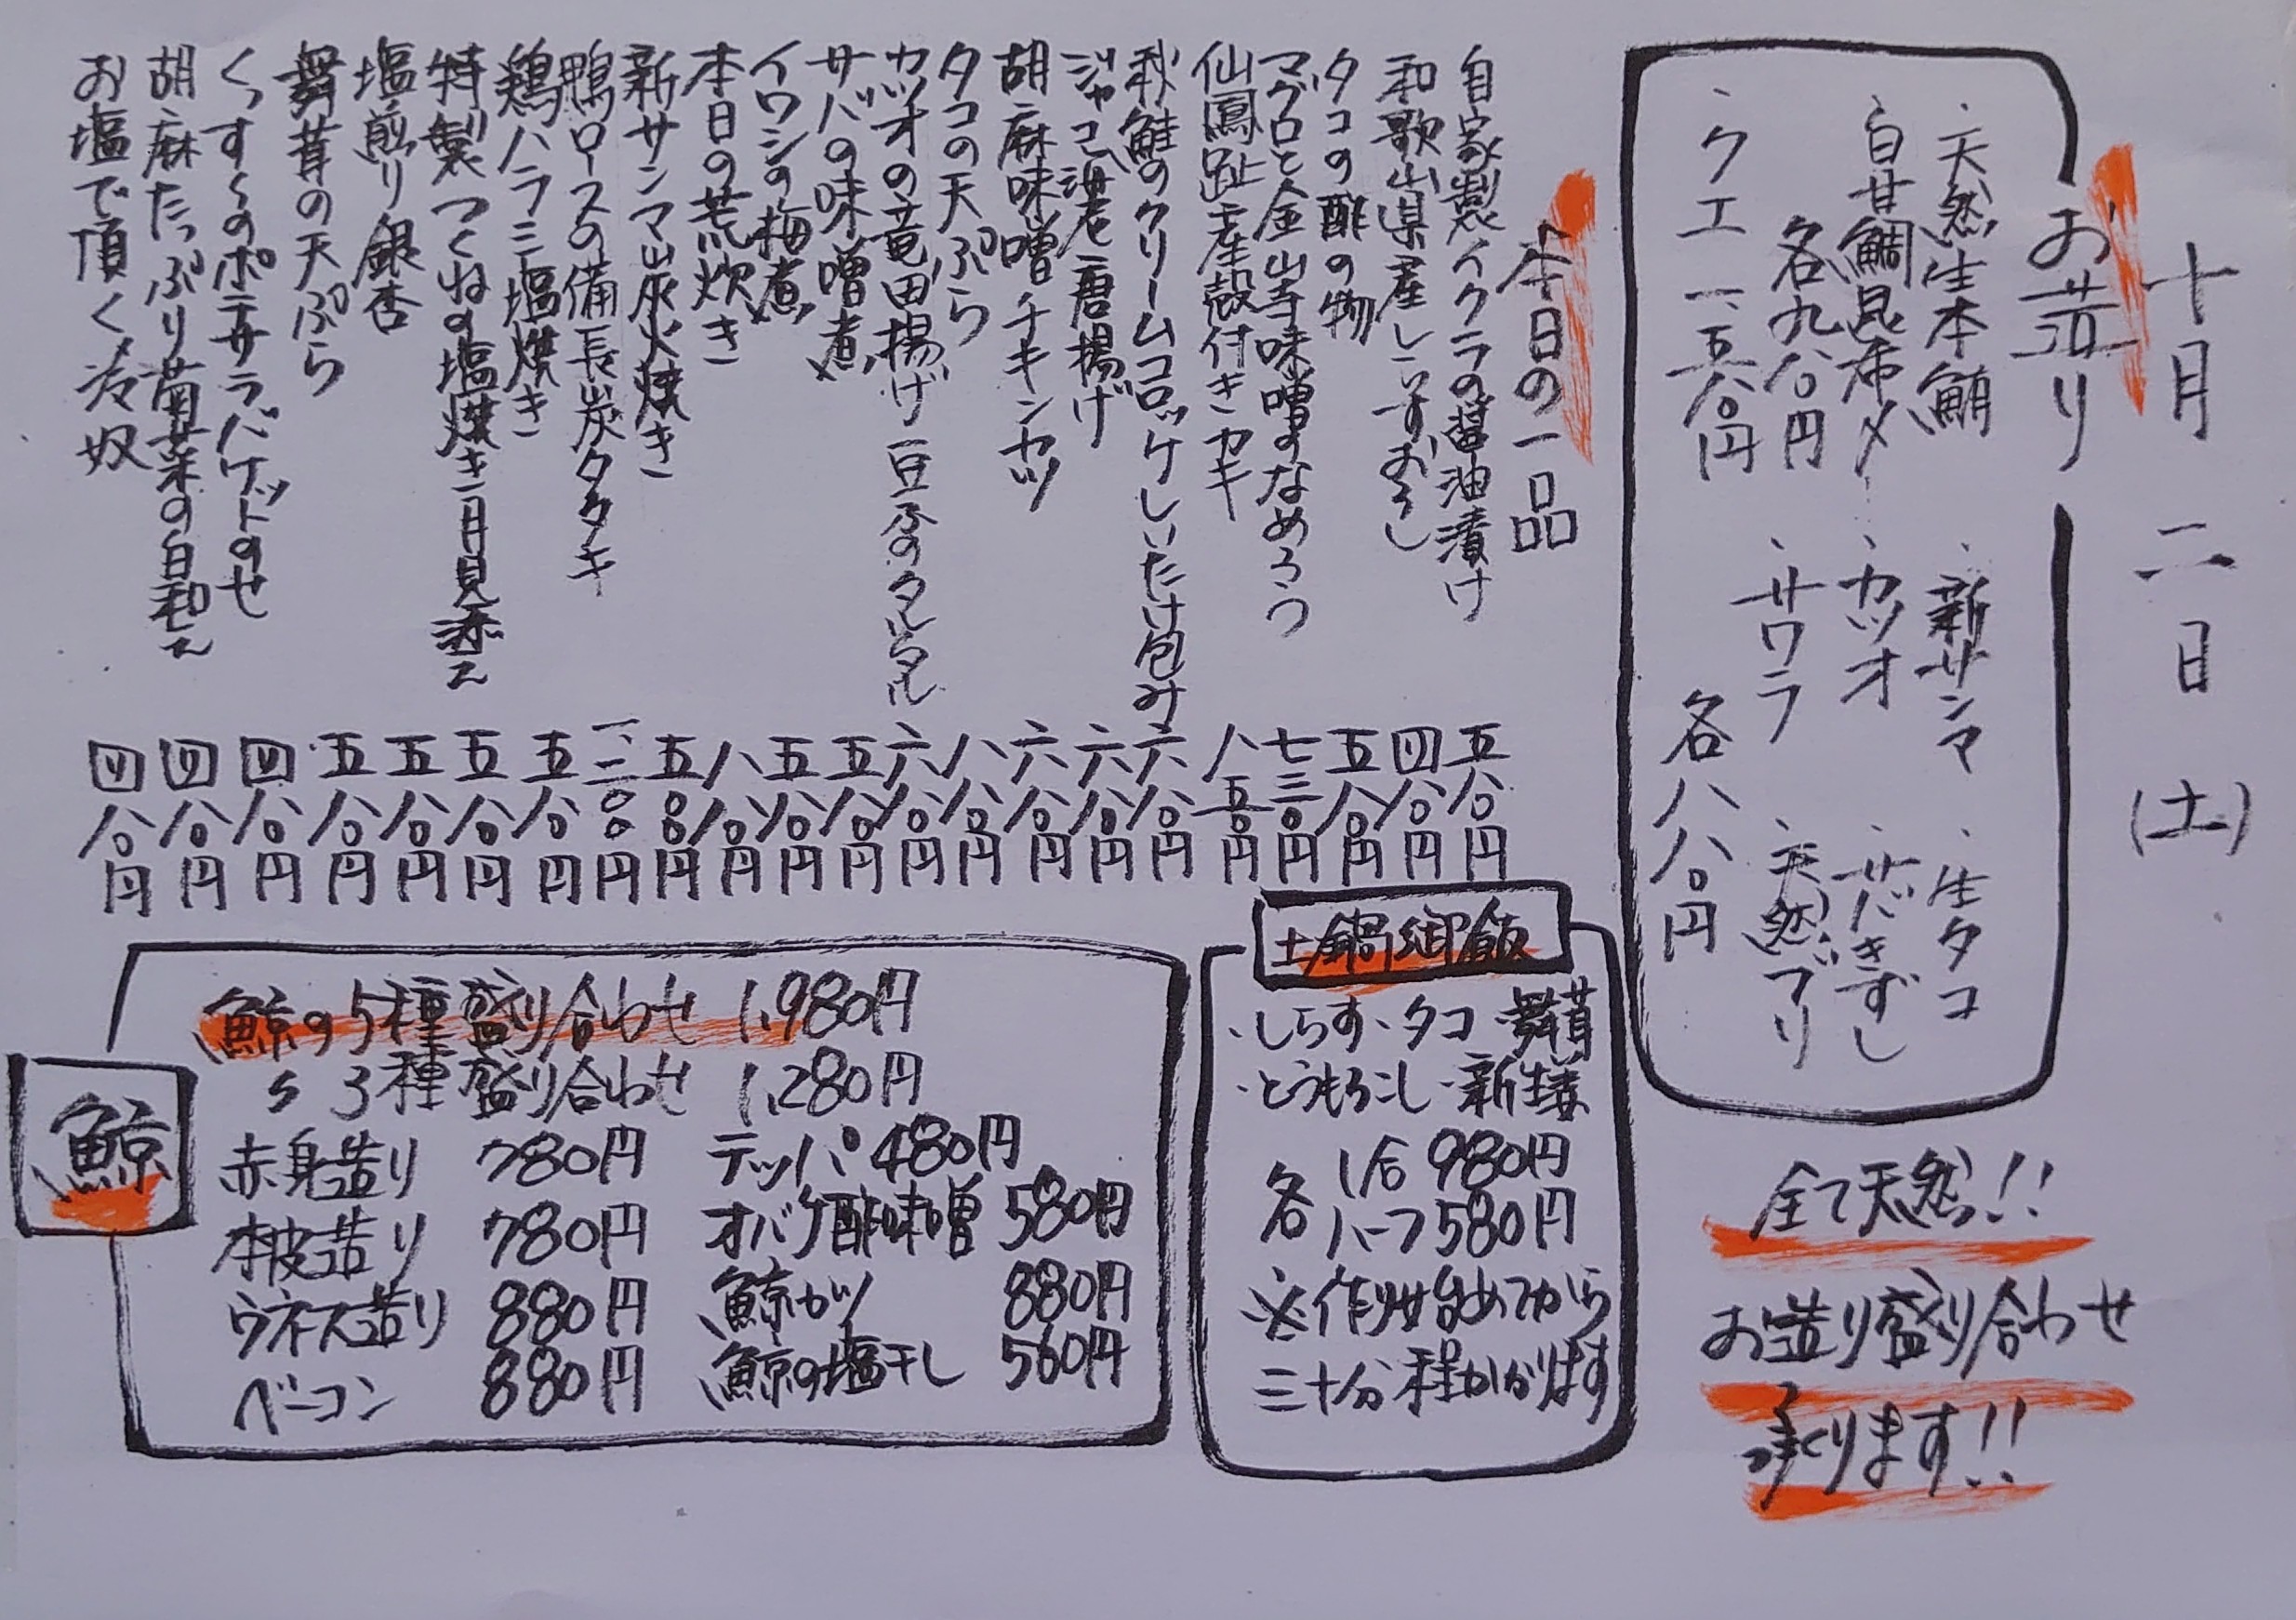 十月二日(土)
お造り
・天然生本鮪
・白甘鯛昆布〆
各九八〇円
・クエ 一、五八〇円
・新サンマ
・カツオ
・サワラ
・生タコ
・サバきずし
・天然ブリ
各八八〇円
全て天然!!
お造り盛り合わせ
承ります!!
本日の一品
自家製イクラの醤油漬け 五八〇円
和歌山県産しらすおろし 四八〇円
タコの酢の物 五八〇円
マグロと金山寺味噌のなめろう 七三〇円
仙鳳趾産殻付きカキ 八五〇円
秋鮭のクリームコロッケしいたけ包み 六八〇円
ジャコ港老唐揚げ 六八〇円
胡麻味噌チキンカツ 六八〇円
タコの天ぷら 八八〇円
カツオの竜田揚げ 豆腐のタルタル 六八〇円
サバの味噌煮 五八〇円
イワシの梅煮 五八〇円
本日の荒炊き 八八〇円
新サンマ炭火焼き 五〇〇円
鴨ロースの備長炭タタキ 一、二〇〇円
鶏ハラミ塩焼き 五八〇円
特製つくねの塩焼き 月見添え 五八〇円
塩煎り銀杏 五八〇円
舞茸の天ぷら 五八〇円
くっすくのポテサラバケットのせ 四八〇円
胡麻たっぷり菊菜の白和え 四八〇円
お塩で頂く冷奴 四八〇円
土鍋御飯
・しらす・タコ・舞茸
・とうもろこし・新生姜
各 1合 980円
ハーフ 580円
※作り始めてから
三十分程かかります
鯨
鯨の5種盛り合わせ 1,980円
〃 3種盛り合わせ 1,280円
赤身造り 780円
本皮造り 780円
ウネス造り 880円
ベーコン 880円
テッパ 480円
オバケ酢味噌 580円
鯨カツ 880円
鯨の塩干し 560円